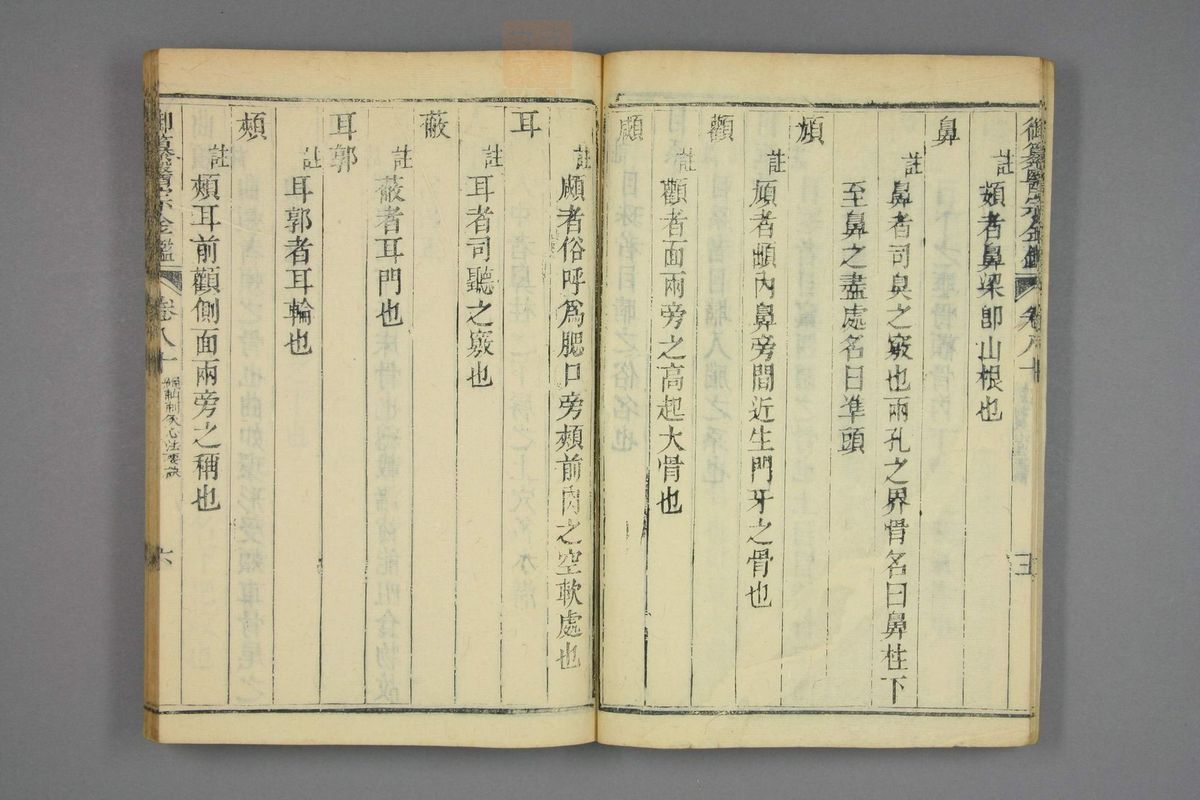 御纂醫宗金鑑 卷八十 五
註頞者鼻梁卽山根也
鼻
註鼻者司臭之竅也兩孔之界骨名曰鼻柱下
至鼻之盡處名曰準頭
䪼
註䪼者䪼內鼻旁間近生門牙之骨也
顴
註顴者面兩旁之高起大骨也
顑
註顑者俗呼爲腮口旁頰前肉之空軟處也
耳
註耳者司聽之竅也
蔽
註蔽者耳門也
耳郭
註耳郭者耳輪也
頰
註頰耳前顴側面兩旁之稱也
御纂醫宗金鑑 卷八十 編輯刺灸心法要訣 六